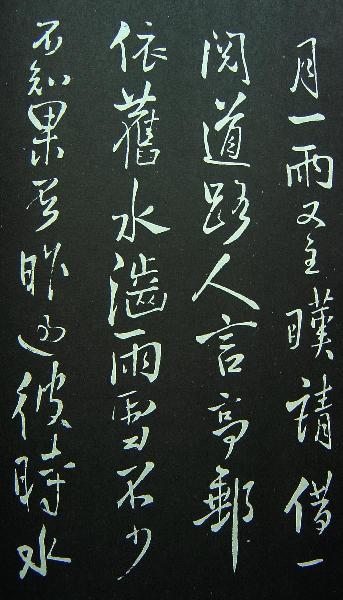 月一雨又主暵請借一
閱道路人言高郵
依舊水澁雨雪不少
不知果否昨過彼時水